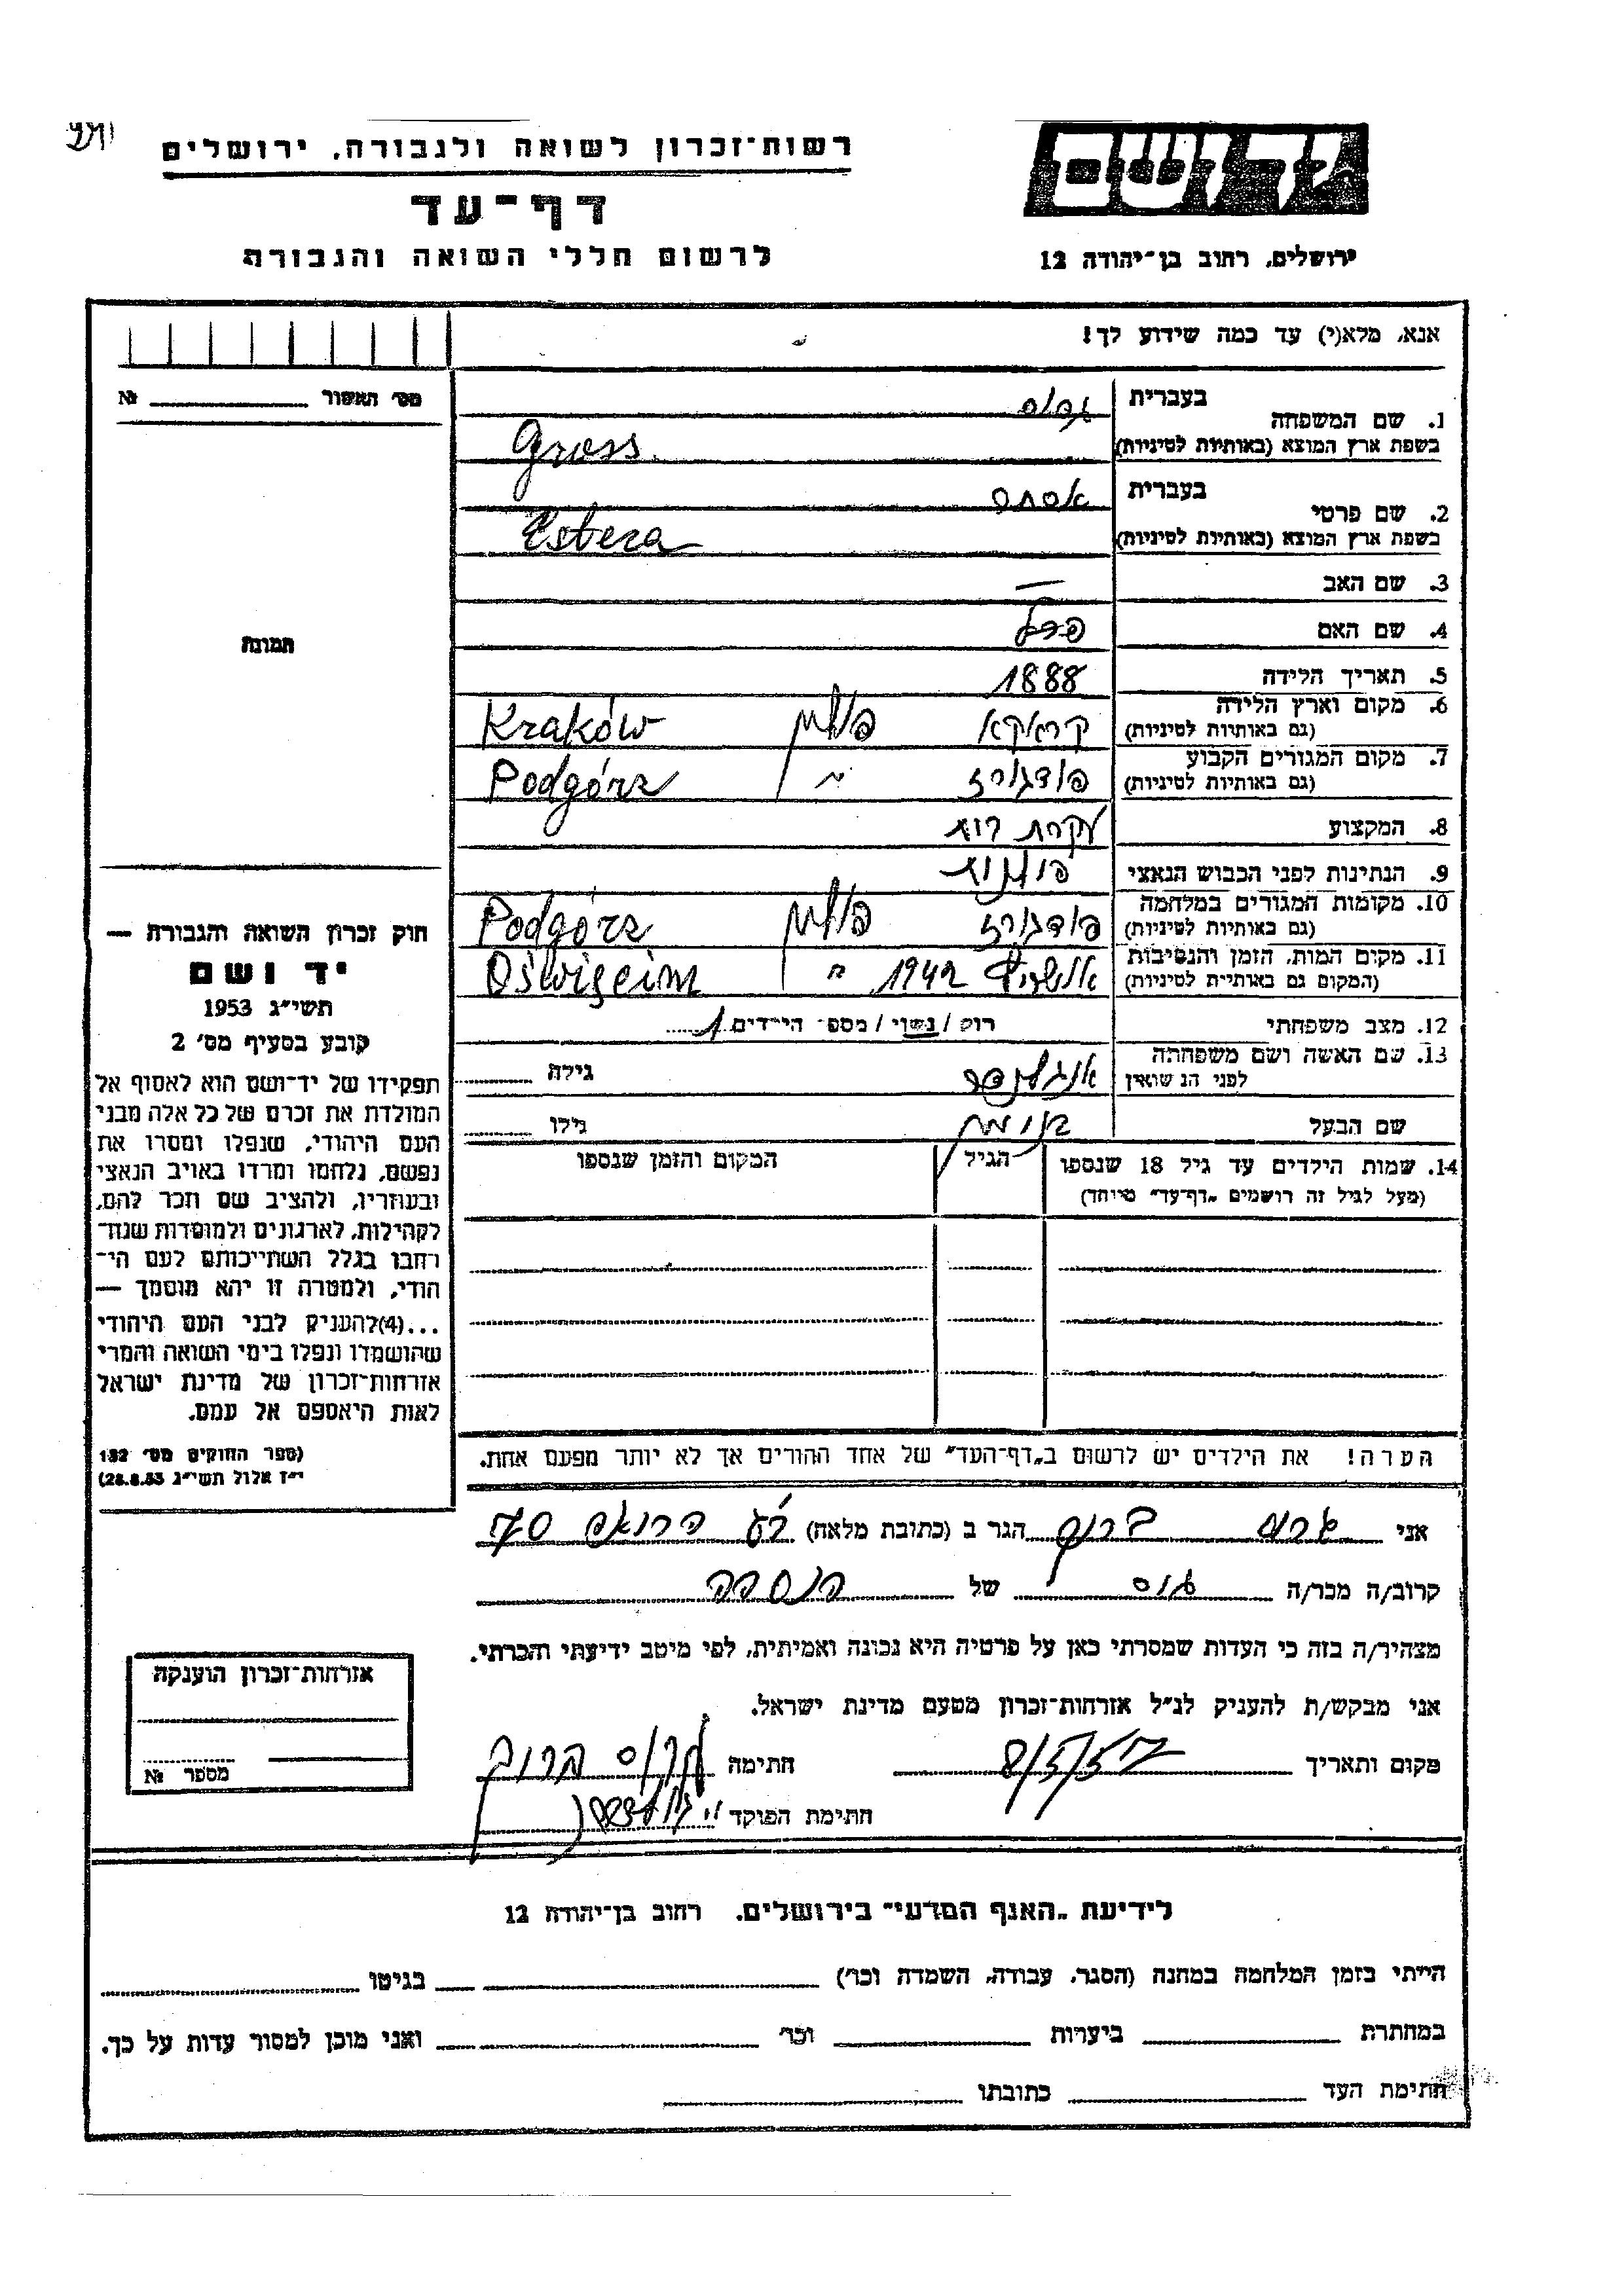 רשות־זכרון לשואה ולגבורה, ירושלים
דף־עד
לרשום חללי השואה והגבורה
ירושלים, רחוב בן־יהודה 12
אנא, מלא(י) עד כמה שידוע לך!
מס׳ האשור № 
בעברית
1. שם המשפחה גרוס
בשפת ארץ המוצא (באותיות לטיניות) Gross
בעברית
2. שם פרטי אסתר
בשפת ארץ המוצא (באותיות לטיניות) Estera
3. שם האב —
4. שם האם פרל
5. תאריך הלידה 1888
6. מקום וארץ הלידה קראקא פולין Kraków
(גם באותיות לטיניות)
7. מקום המגורים הקבוע פודגורז " Podgórz
(גם באותיות לטיניות)
8. המקצוע עקרת בית
9. הנתינות לפני הכבוש הנאצי פולנית
10. מקומות המגורים במלחמה פודגורז פולין Podgórz
(גם באותיות לטיניות)
11. מקום המות, הזמן והנסיבות 1942 " Oświęcim
(המקום גם באותיות לטיניות)
12. מצב משפחתי רוק / נשוי / מספר הילדים 1
13. שם האשה ושם משפחתה גילה
לפני הנשואין
שם הבעל גילו
14. שמות הילדים עד גיל 18 שנספו הגיל המקום והזמן שנספו
(מעל לגיל זה רושמים „דף־עד״ מיוחד)
תמונה
חוק זכרון השואה והגבורה —
יד ושם
תשי״ג 1953
קובע בסעיף מס׳ 2
תפקידו של יד־ושם הוא לאסוף אל
המולדת את זכרם של כל אלה מבני
העם היהודי, שנפלו ומסרו את
נפשם, נלחמו ומרדו באויב הנאצי
ובעוזריו, ולהציב שם וזכר להם,
לקהילות, לארגונים ולמוסדות שנח־
רבו בגלל השתייכותם לעם הי־
הודי, ולמטרה זו יהא מוסמך —
...(4) להעניק לבני העם היהודי
שהושמדו ונפלו בימי השואה והמרי
אזרחות־זכרון של מדינת ישראל
לאות היאספם אל עמם.
(ספר החוקים מס׳ 132
י״ז אלול תשי״ג 28.8.53)
הערה! את הילדים יש לרשום ב„דף־העד״ של אחד ההורים אך לא יותר מפעם אחת.
אני גרוס ברוך הגר ב (כתובת מלאה)
קרוב/ה מכר/ה גיס של הנספה
מצהיר/ה בזה כי העדות שמסרתי כאן על פרטיה היא נכונה ואמיתית, לפי מיטב ידיעתי והכרתי.
אני מבקש/ת להעניק לנ״ל אזרחות־זכרון מטעם מדינת ישראל.
מקום ותאריך 8/5/57 חתימה גרוס ברוך
חתימת הפוקד
אזרחות־זכרון הוענקה
מספר №
לידיעת „האגף המדעי״ בירושלים, רחוב בן־יהודה 12
הייתי בזמן המלחמה במחנה (הסגר, עבודה, השמדה וכו׳) בגיטו
במחתרת ביערות וכו׳ ואני מוכן למסור עדות על כך.
חתימת העד כתובתו